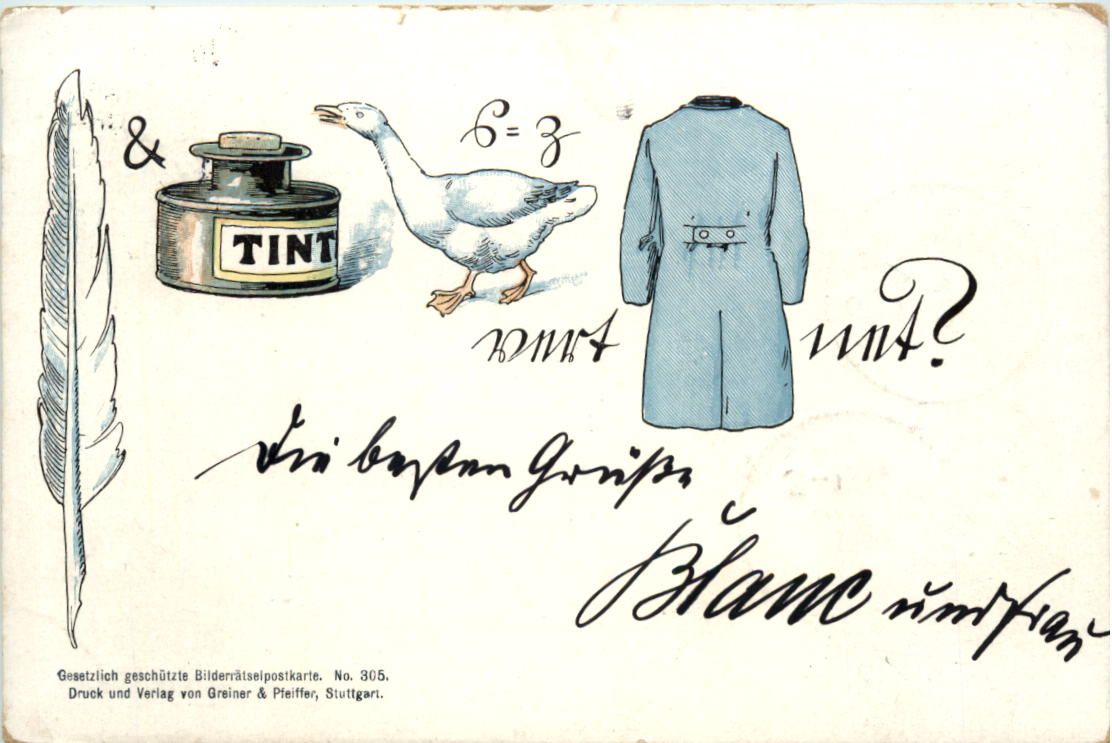 &
TINT
s = z
vert net?
Die besten Grüße
Blanc und Frau
Gesetzlich geschützte Bilderrätselpostkarte. No. 305.
Druck und Verlag von Greiner & Pfeiffer, Stuttgart.